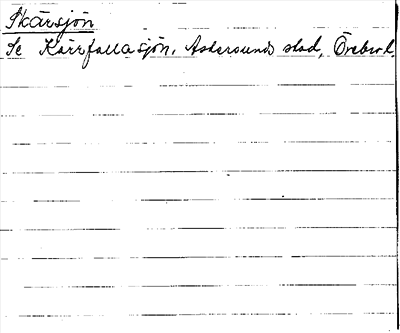 Skärsjön
Se Kärrfallasjön, Askersunds stad, Örebro l.